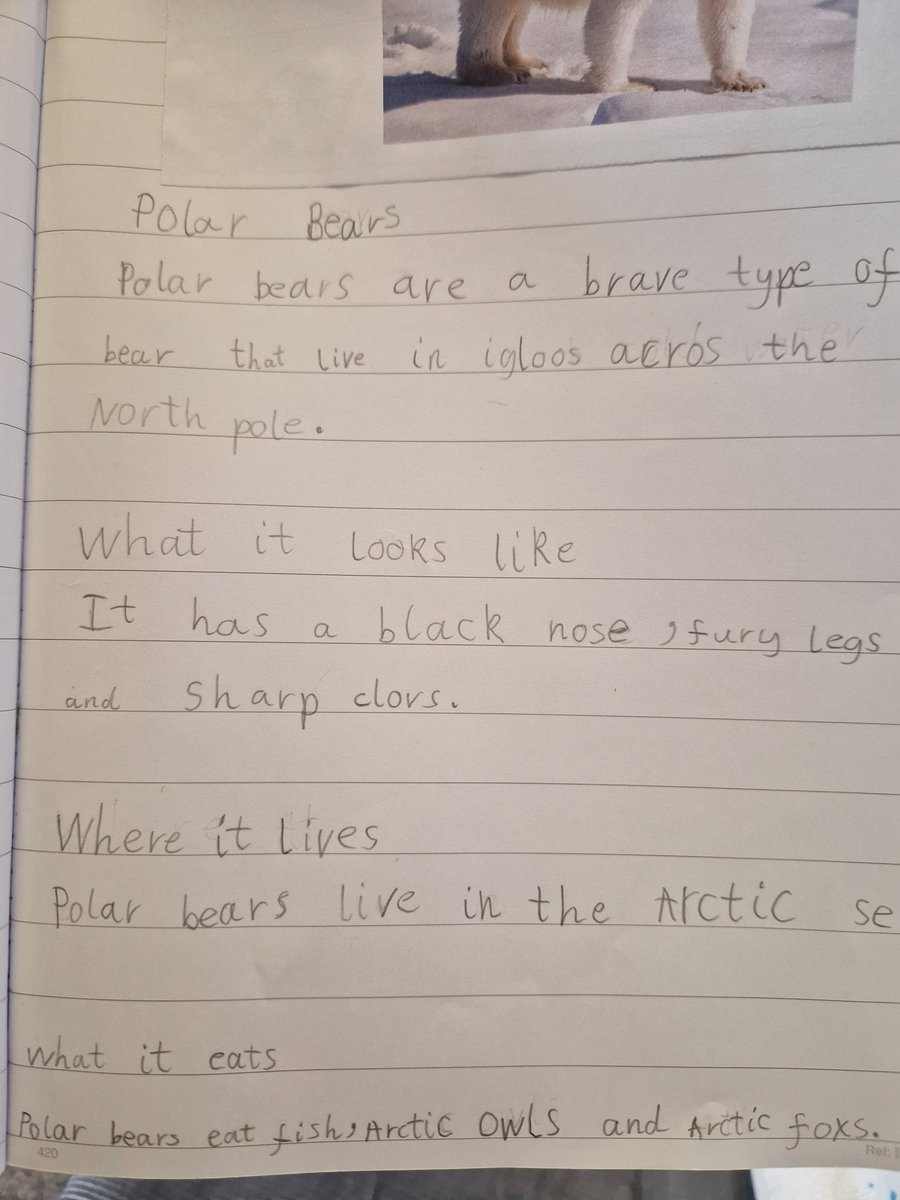 Polar Bears
Polar bears are a brave type of
bear that live in igloos acros the
North pole.
What it looks like
It has a black nose , fury legs
and sharp clovs.
Where it lives
Polar bears live in the Arctic se
What it eats
Polar bears eat fish, Arctic owls and Arctic foxs.
420
Ref: